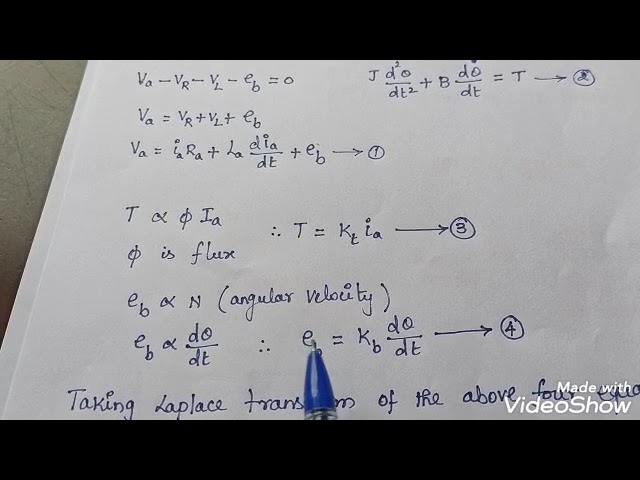 Va − VR − VL − eb = 0
J d²θ/dt² + B dθ/dt = T → ②
Va = VR + VL + eb
Va = ia Ra + La dia/dt + eb → ①
T ∝ ϕ Ia ∴ T = Kt ia → ③
ϕ is flux
eb ∝ N (angular velocity)
eb ∝ dθ/dt ∴ eb = Kb dθ/dt → ④
Taking Laplace of the above four
Made with
VideoShow